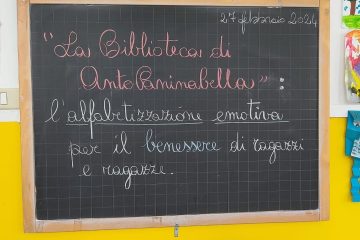 27 febbraio 2024
"La Biblioteca di
AntoPaninabella":
l'alfabetizzazione emotiva
per il benessere di ragazzi
e ragazze.